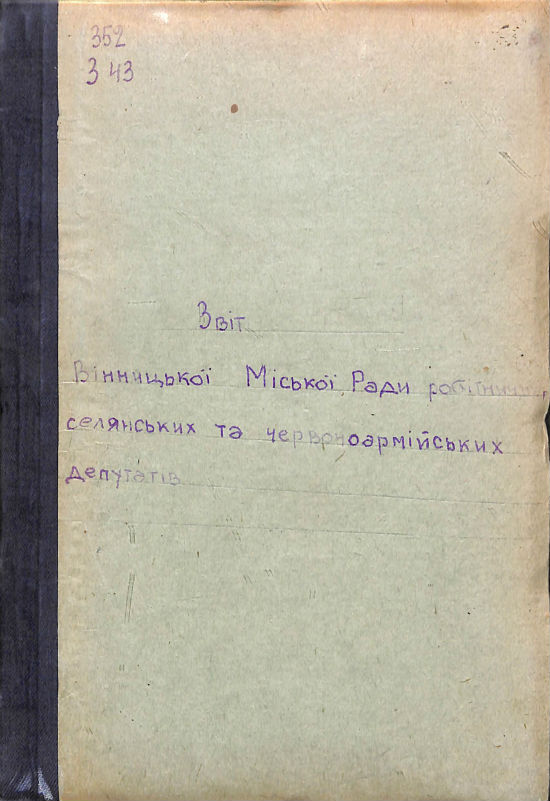 352
З 43
Звіт
Вінницької Міської Ради робітничих,
селянських та червоноармійських
депутатів